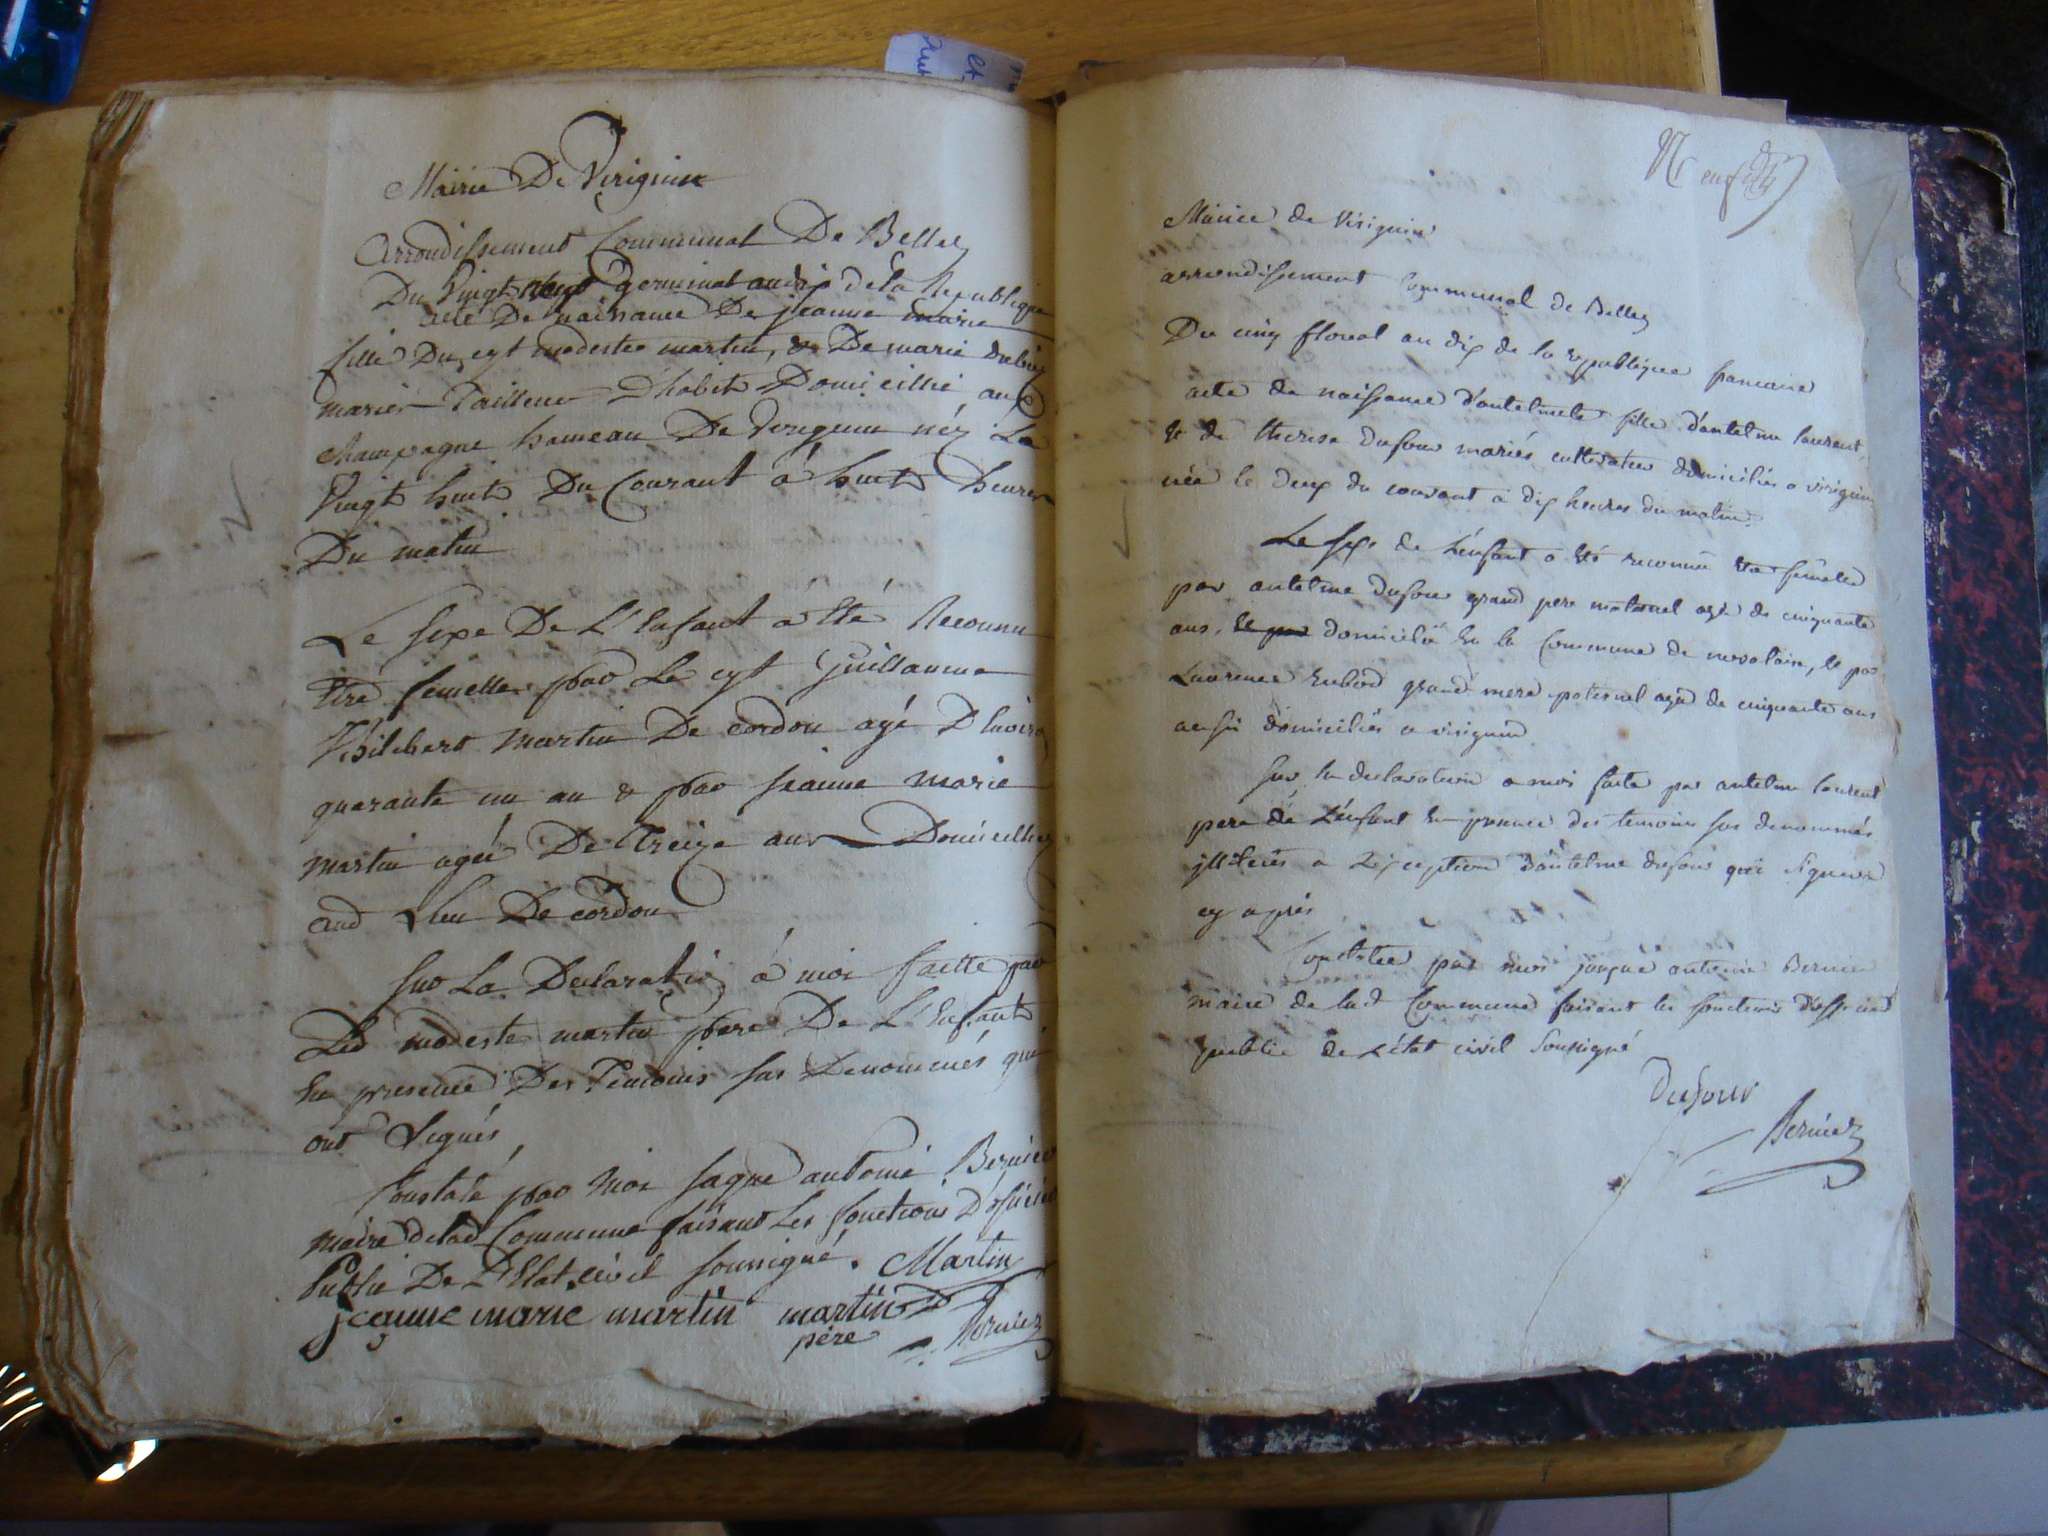 Mairie De Virignin
Arrondissement Communal De Belley
Du vingt neuf Germinal an dix de la Republique
acte De naissance De jeanne marie
fille Du cyt modeste martin, & De marie
mariés Tailleur D'habits Domicillié au
Champagne hameau De Virignin néz Le
Vingt huit Du Courant á huit heures
Du matin
Le sexe De L'Enfant á Eté Reconnu
Etre femelle par Le cyt Guillaume
Philibert martin De cordon agé D'Environ
quarante un an & par jeanne marie
martin ageé De treize ans Domicilliez
aud Lieu De cordon
sur La Declaration á moi faitte par
Led modeste martin pere De L'Enfant
En presence Des Temoins sus Denommés qui
ont Signés,
Constaté par Moi jaque antoine Bernier
maire delad Commune faisant Les fonctions D'officier
Public De L'Etat civil soussigné. Martin
jeanne marie martin martin
père Bernier
Mairie de Virignin
arrondissement Communal de Belley
Du cinq floreal an dix de la republique francaise
acte de naissance d'antelmete fille d'antelme laurent,
et de therese Dufour mariés cultivateur domiciliés a virignin
née le deux du courant à dix heures du matin
Le sexe de L'enfant a été reconnu etre femelle
par antelme Dufour grand pere maternel agé de cinquante
ans, et par domicilié En la Commune de, et par
Laurence grand mere paternel agée de cinquante ans
aussi domiciliés a virignin
sur la declaration a moi faite par antelme laurent
pere de L'enfant En presence des temoins sus denommés
illiterés a L'exception d'antelme dufour qui signera
cy après
Constatée par moi jacque antoine Bernier
maire de lad Commune faisant les fonctions d'officier
public de L'état civil soussigné
Dufour
Bernier